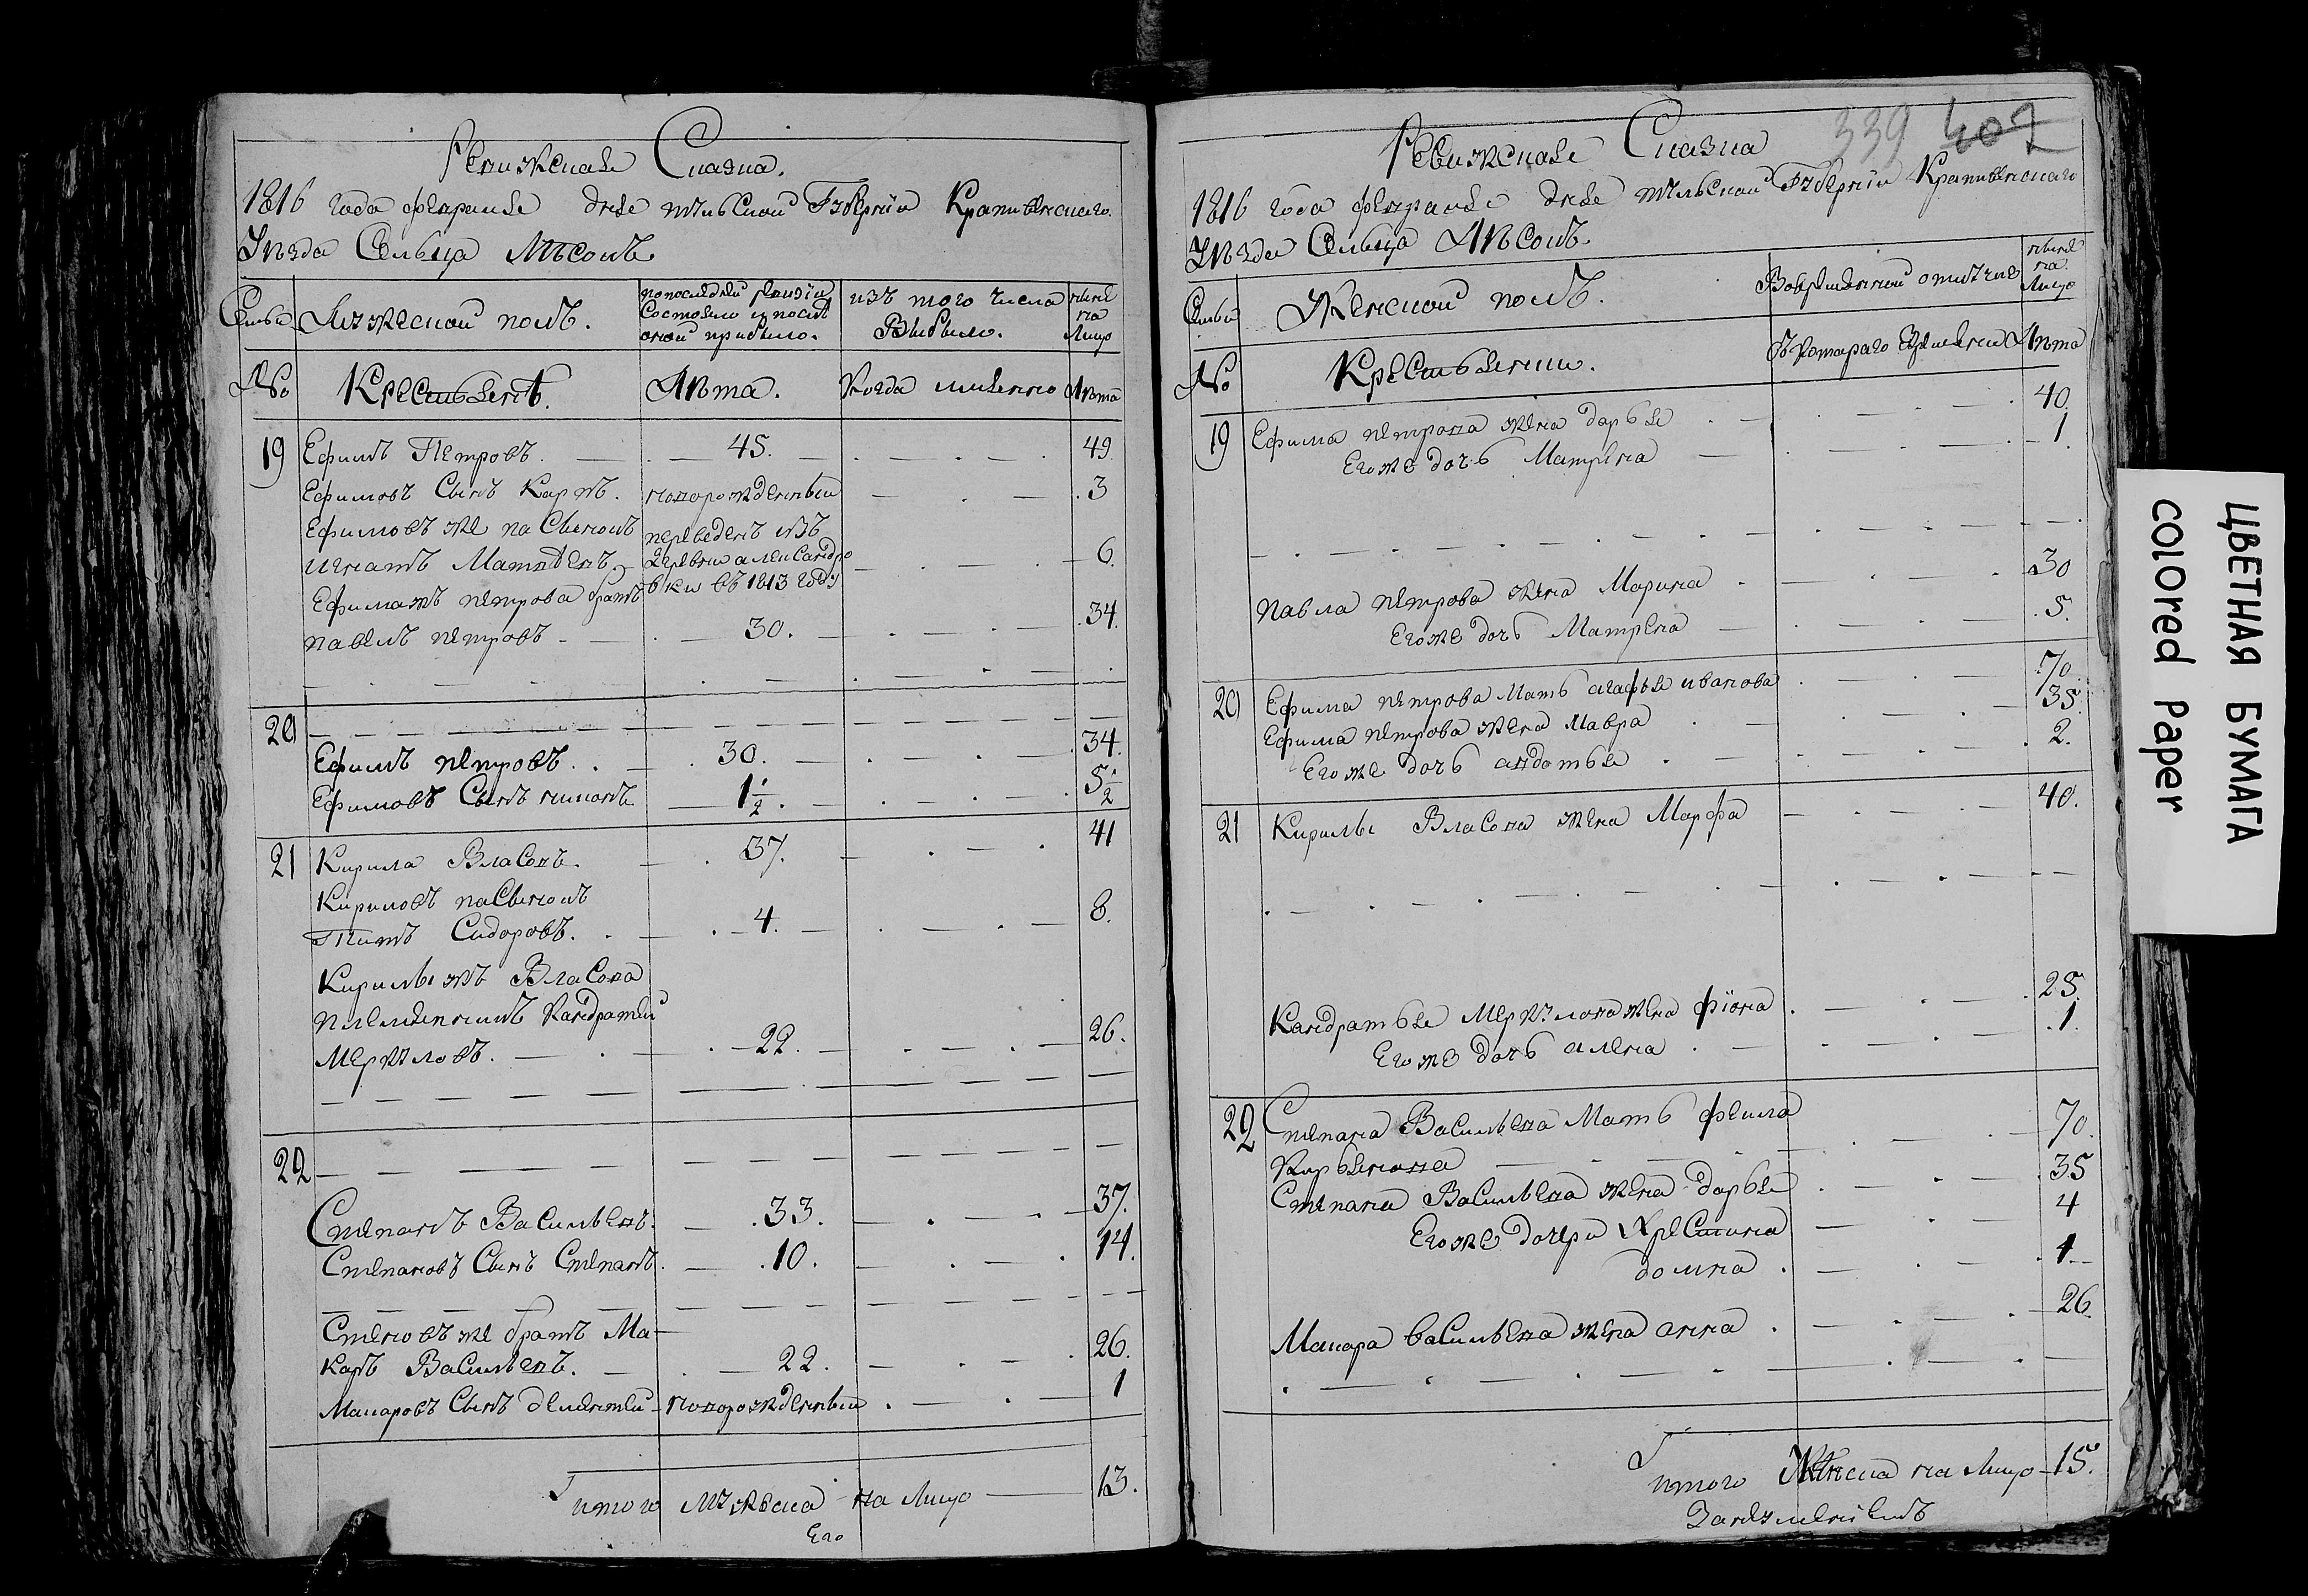 Ревижская Сказка.
1816 года февраля дня тульской Губернiи Крапивенскаго
Уезда Сельца Лѣсокъ.
Семьи
Мужеской полъ.
по последней ревизiи
Состояло и после
оной прибыло.
изъ того числа
Выбыло.
ныне
на
Лицо
№
Крестьянѣ.
Лѣта.
Когда имянно
Лѣта
19 Ефимъ Петровъ. 45. 49.
Ефимовъ Сынъ Карпъ. новорожденный 3
Ефимовъ же пасынокъ переведенъ изъ
игнатъ Матвѣевъ. деревни александро 6.
Ефимажъ петрова братъ вки въ 1813 году
павелъ петровъ 30. 34.
20
Ефимъ петровъ. 30. 34.
Ефимовъ Сынъ 1 1/2. 5 1/2
21 Кирила Власовъ. 37. 41
Кириловъ пасынокъ
Титъ Сидоровъ. 4. 8.
Кирилы жъ Власова
племянникъ Кандратей
Меркуловъ. 22. 26.
22
Степанъ Васильевъ. 33. 37.
Степановъ Сынъ Степанъ. 10. 14.
Степановъ же братъ Ма
каръ Васильевъ. 22. 26.
Макаровъ Сынъ дементей новорожденный 1
итого мужеска на Лицо 13.
Его
339 402
Ревижская Сказка
1816 года февраля дня тульской Губернiи Крапивенскаго
Уезда Сельца Лѣсокъ.
Семьи
Женской полъ.
Вовремянной отлучке
ныне
на
Лицо
№
Крестьянки.
Съ котораго времяни
Лѣта
19 Ефима петрова жена дарья 40.
Егоже дочь Матрена 1.
павла петрова жена Марина 30
Егоже дочь Матрена 5.
20 Ефима петрова Мать агафья иванова 70.
Ефима петрова жена Мавра 35.
Егоже дочь авдотья 2.
21 Кирилы Власова жена Марфа 40.
Кандратья Меркулова жена фiона 25.
Егоже дочь алена 1.
22 Степана Васильева Мать фекла 70.
Степана Васильева жена дарья 35
Егоже дочери Хрестина 4
домна 1
Макара васильева жена анна 26.
итого Женска на Лицо 15.
ЦВЕТНАЯ БУМАГА
colored Paper